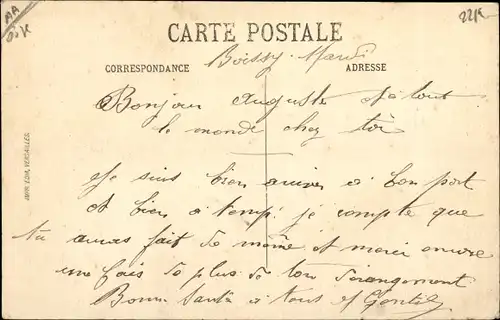 AA
CARTE POSTALE
CORRESPONDANCE
Boissy-Mardi
ADRESSE
Bonjour Auguste et à tout
le monde chez toi
Je suis bien arrivée à bon port
et bien à temps je compte que
tu auras fait de même et merci encore
une fois de plus de ton derangement
Bonne Santé à tous
IMP. EDIA, VERSAILLES.